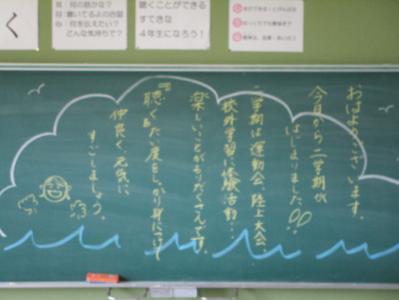 く
耳：何の話かな？
目：聴いてるよの合図
心：何を伝えたい？
どんな気持ちで？
聴くことができる
すてきな
４年生になろう！
おはようございます。
今日から二学期が
はじまりました!!
二学期は運動会、陸上大会、
校外学習に体験活動…
楽しいことがもりだくさんです。
『聴く』たい度をしっかり身につけて
仲良く、元気に
すごしましょう。